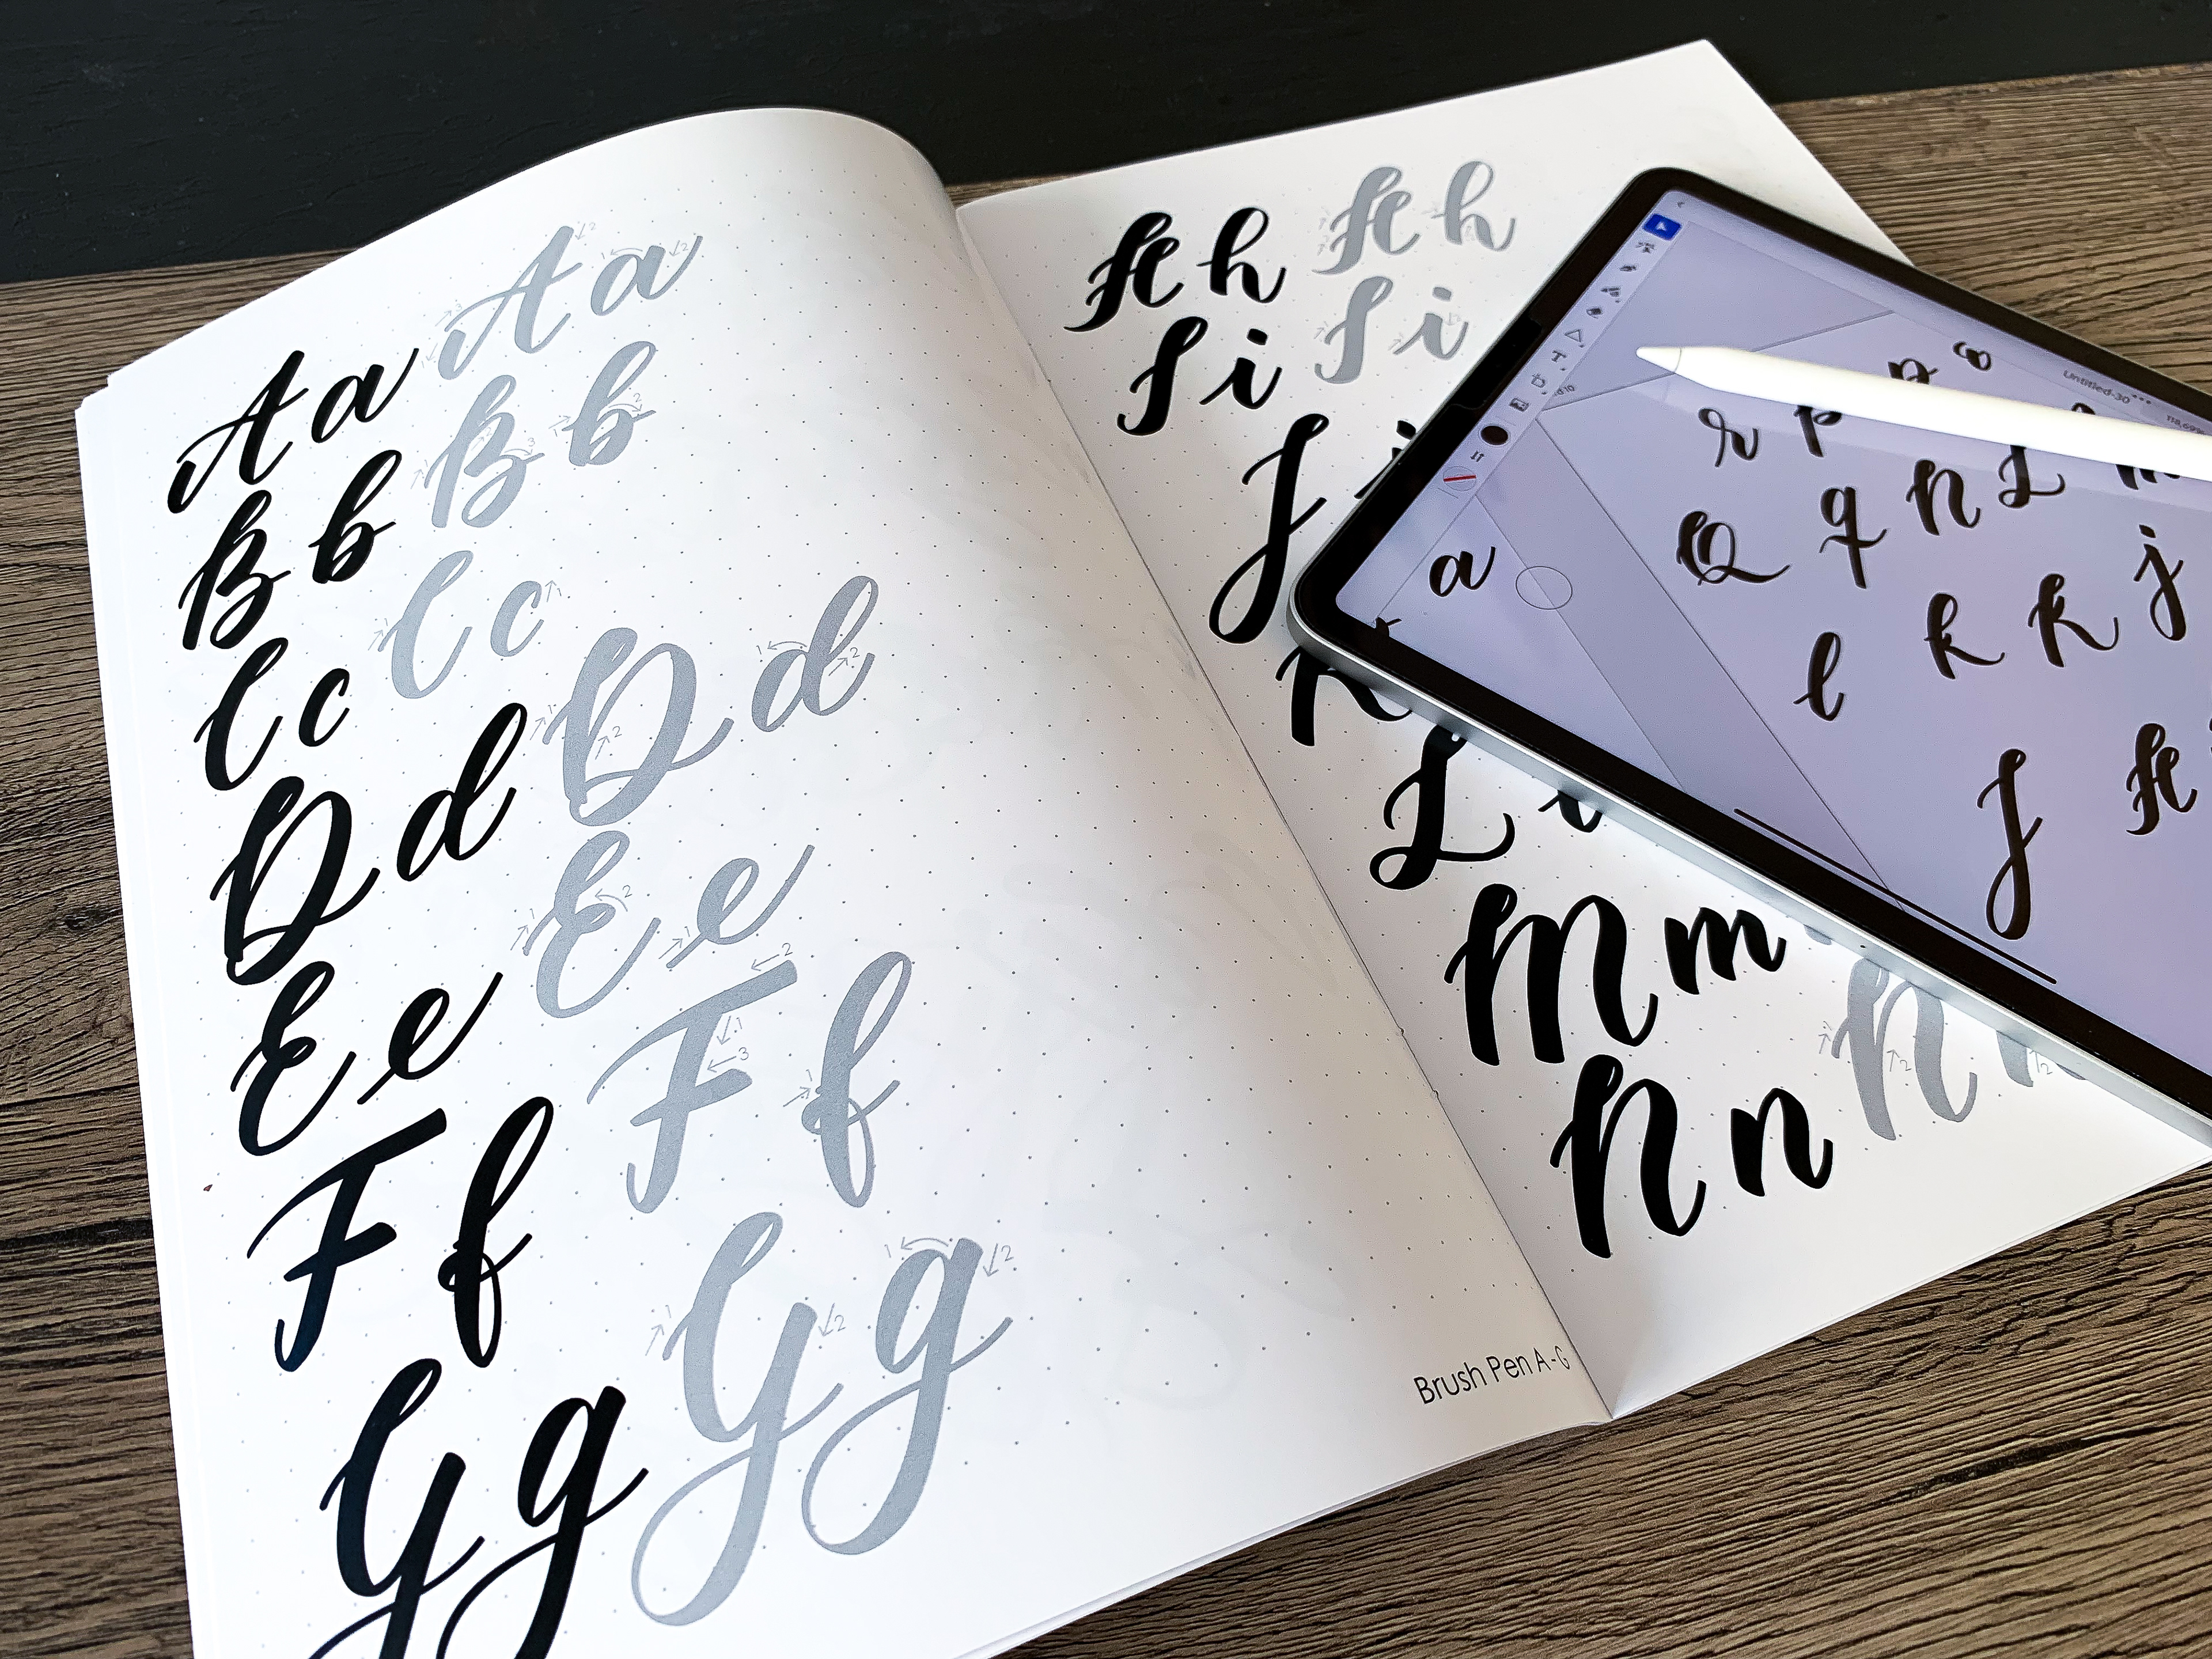 Aa Aa
Bb Bb
Cc Cc
Dd Dd
Ee Ee
Ff Ff
Gg Gg
Brush Pen A-G
Hh Hh
Ii Ii
J
K
L
Mm
Nn N
Untitled-30
p o
r p
Q q n L m
a
l k K j
J H